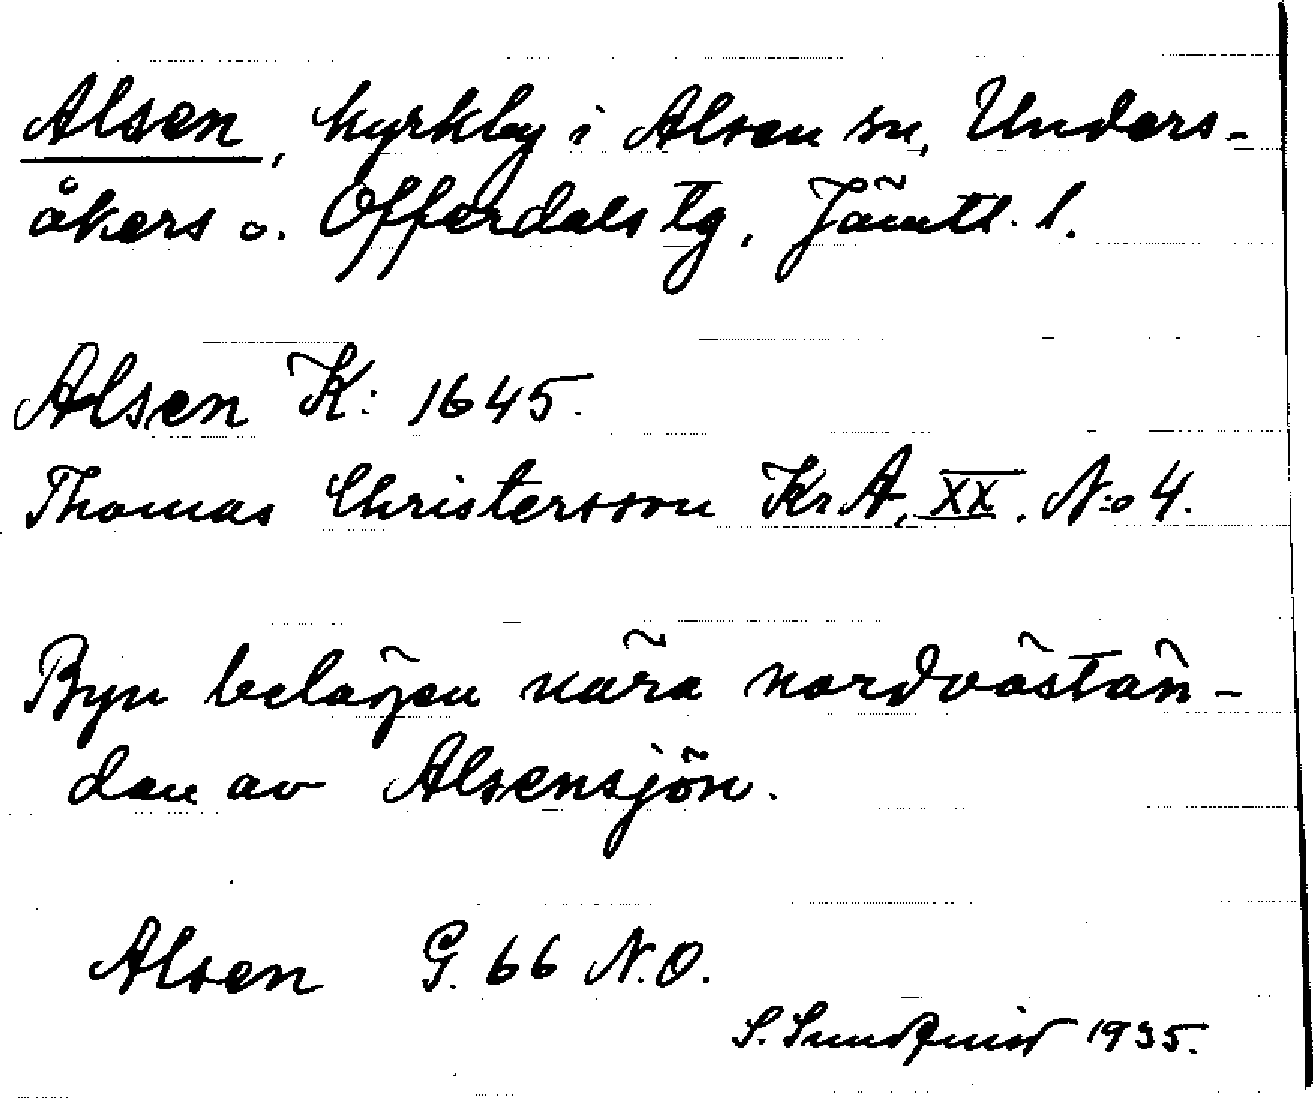 Alsen, kyrkby i Alsen sn, Unders-
åkers o. Offerdals tg, Jämtl. l.
Alsen K: 1645.
Thomas Christersson Kr A, XX, N:o 4.
Byn belägen nära nordvästän-
dan av Alsensjön.
Alsen G. 66 N.O.
S. Sundquist 1935.